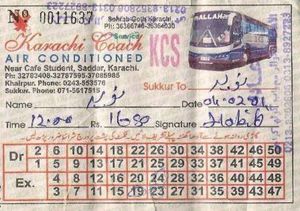 No 0011637
Sohrab Goth Karachi
Ph: 36366746-36364030
Karachi Coach
Service
KCS
ALLAH
AIR CONDITIONED
Near Cafe Student, Saddar, Karachi.
Ph: 32783408-32787595-37085985
Khairpur. Phone: 0243-553576
Sukkur Phone: 071-5617515
Sukkur To
Name
Date 04-02-01
Time 12:00 Rs. 1680 Signature Habib
Dr 2 6 10 14 18 22 26 30 34 38 42 46 50
1 5 9 13 17 21 25 29 33 37 41 45 49
Ex. 4 8 12 16 20 24 28 32 36 40 44 48
3 7 11 15 19 23 27 31 35 39 43 47